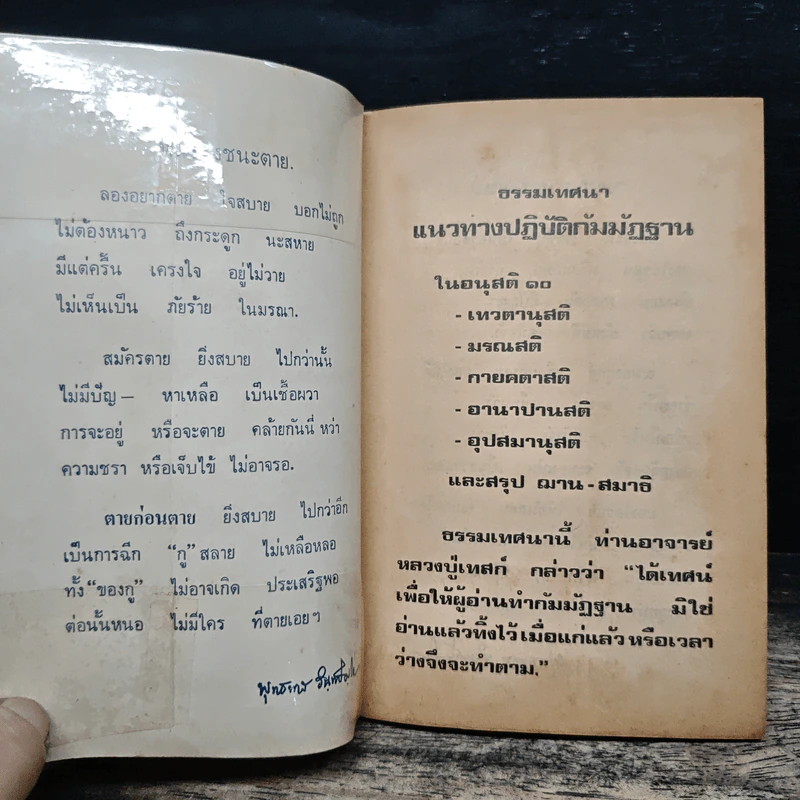 ชนะตาย.
ลองอยากตาย ใจสบาย บอกไม่ถูก
ไม่ต้องหนาว ถึงกระดูก นะสหาย
มีแต่ครื้น เครงใจ อยู่ไม่วาย
ไม่เห็นเป็น ภัยร้าย ในมรณา.
สมัครตาย ยิ่งสบาย ไปกว่านั้น
ไม่มีปัญ– หาเหลือ เป็นเชื้อผวา
การจะอยู่ หรือจะตาย คล้ายกันนี่ หว่า
ความชรา หรือเจ็บไข้ ไม่อาจรอ.
ตายก่อนตาย ยิ่งสบาย ไปกว่าอีก
เป็นการฉีก "กู" สลาย ไม่เหลือหลอ
ทั้ง "ของกู" ไม่อาจเกิด ประเสริฐพอ
ต่อนั้นหนอ ไม่มีใคร ที่ตายเอยฯ
ธรรมเทศนา
แนวทางปฏิบัติกัมมัฏฐาน
ในอนุสติ ๑๐
- เทวตานุสติ
- มรณสติ
- กายคตาสติ
- อานาปานสติ
- อุปสมานุสติ
และสรุป ฌาน - สมาธิ
ธรรมเทศนานี้ ท่านอาจารย์
หลวงปู่เทสก์ กล่าวว่า "ได้เทศน์
เพื่อให้ผู้อ่านทำกัมมัฏฐาน มิใช่
อ่านแล้วทิ้งไว้ เมื่อแก่แล้ว หรือเวลา
ว่างจึงจะทำตาม."